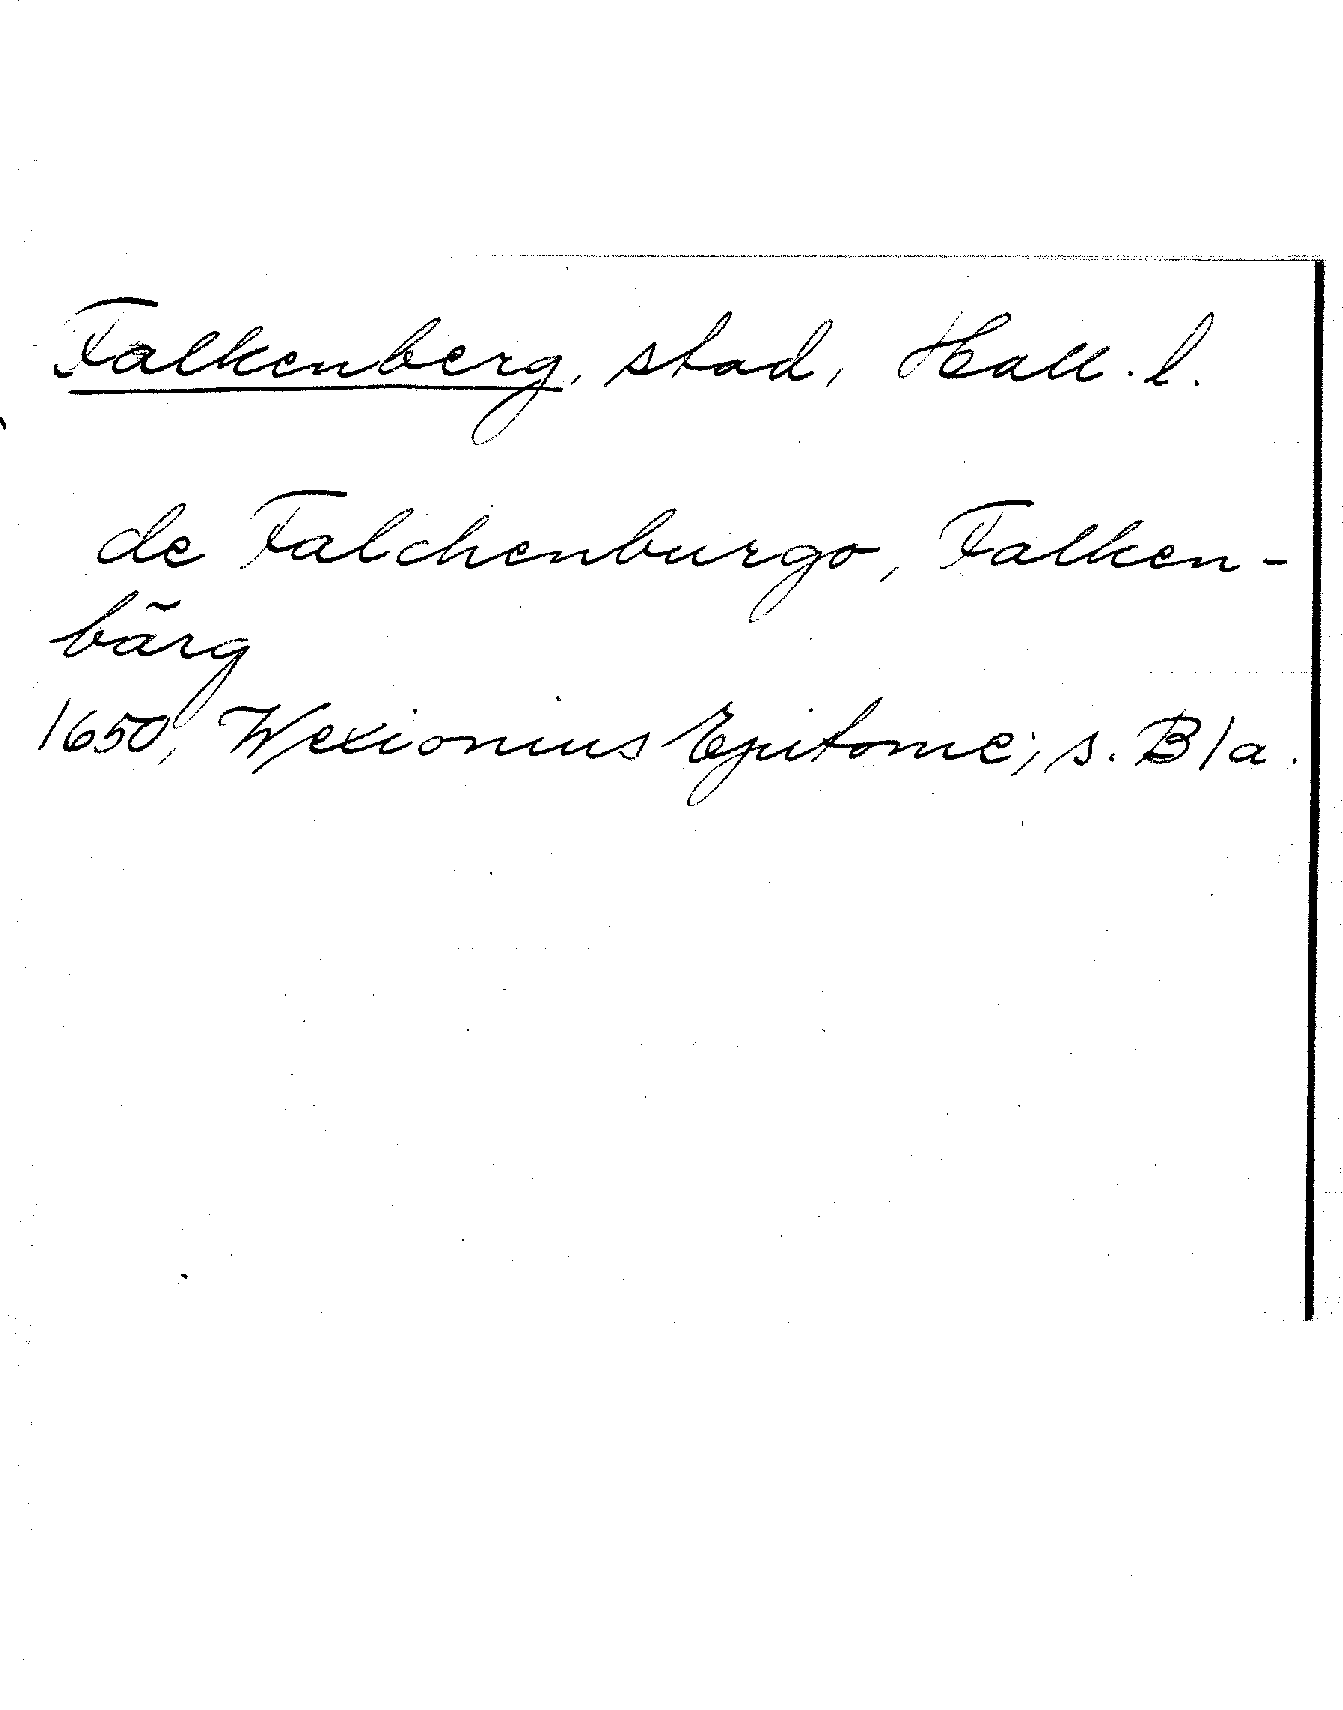 Falkenberg, stad, Hall. l.
de Falchenburgo, Falken-
bärg
1650, Wexionius Epitome; s. B1a.